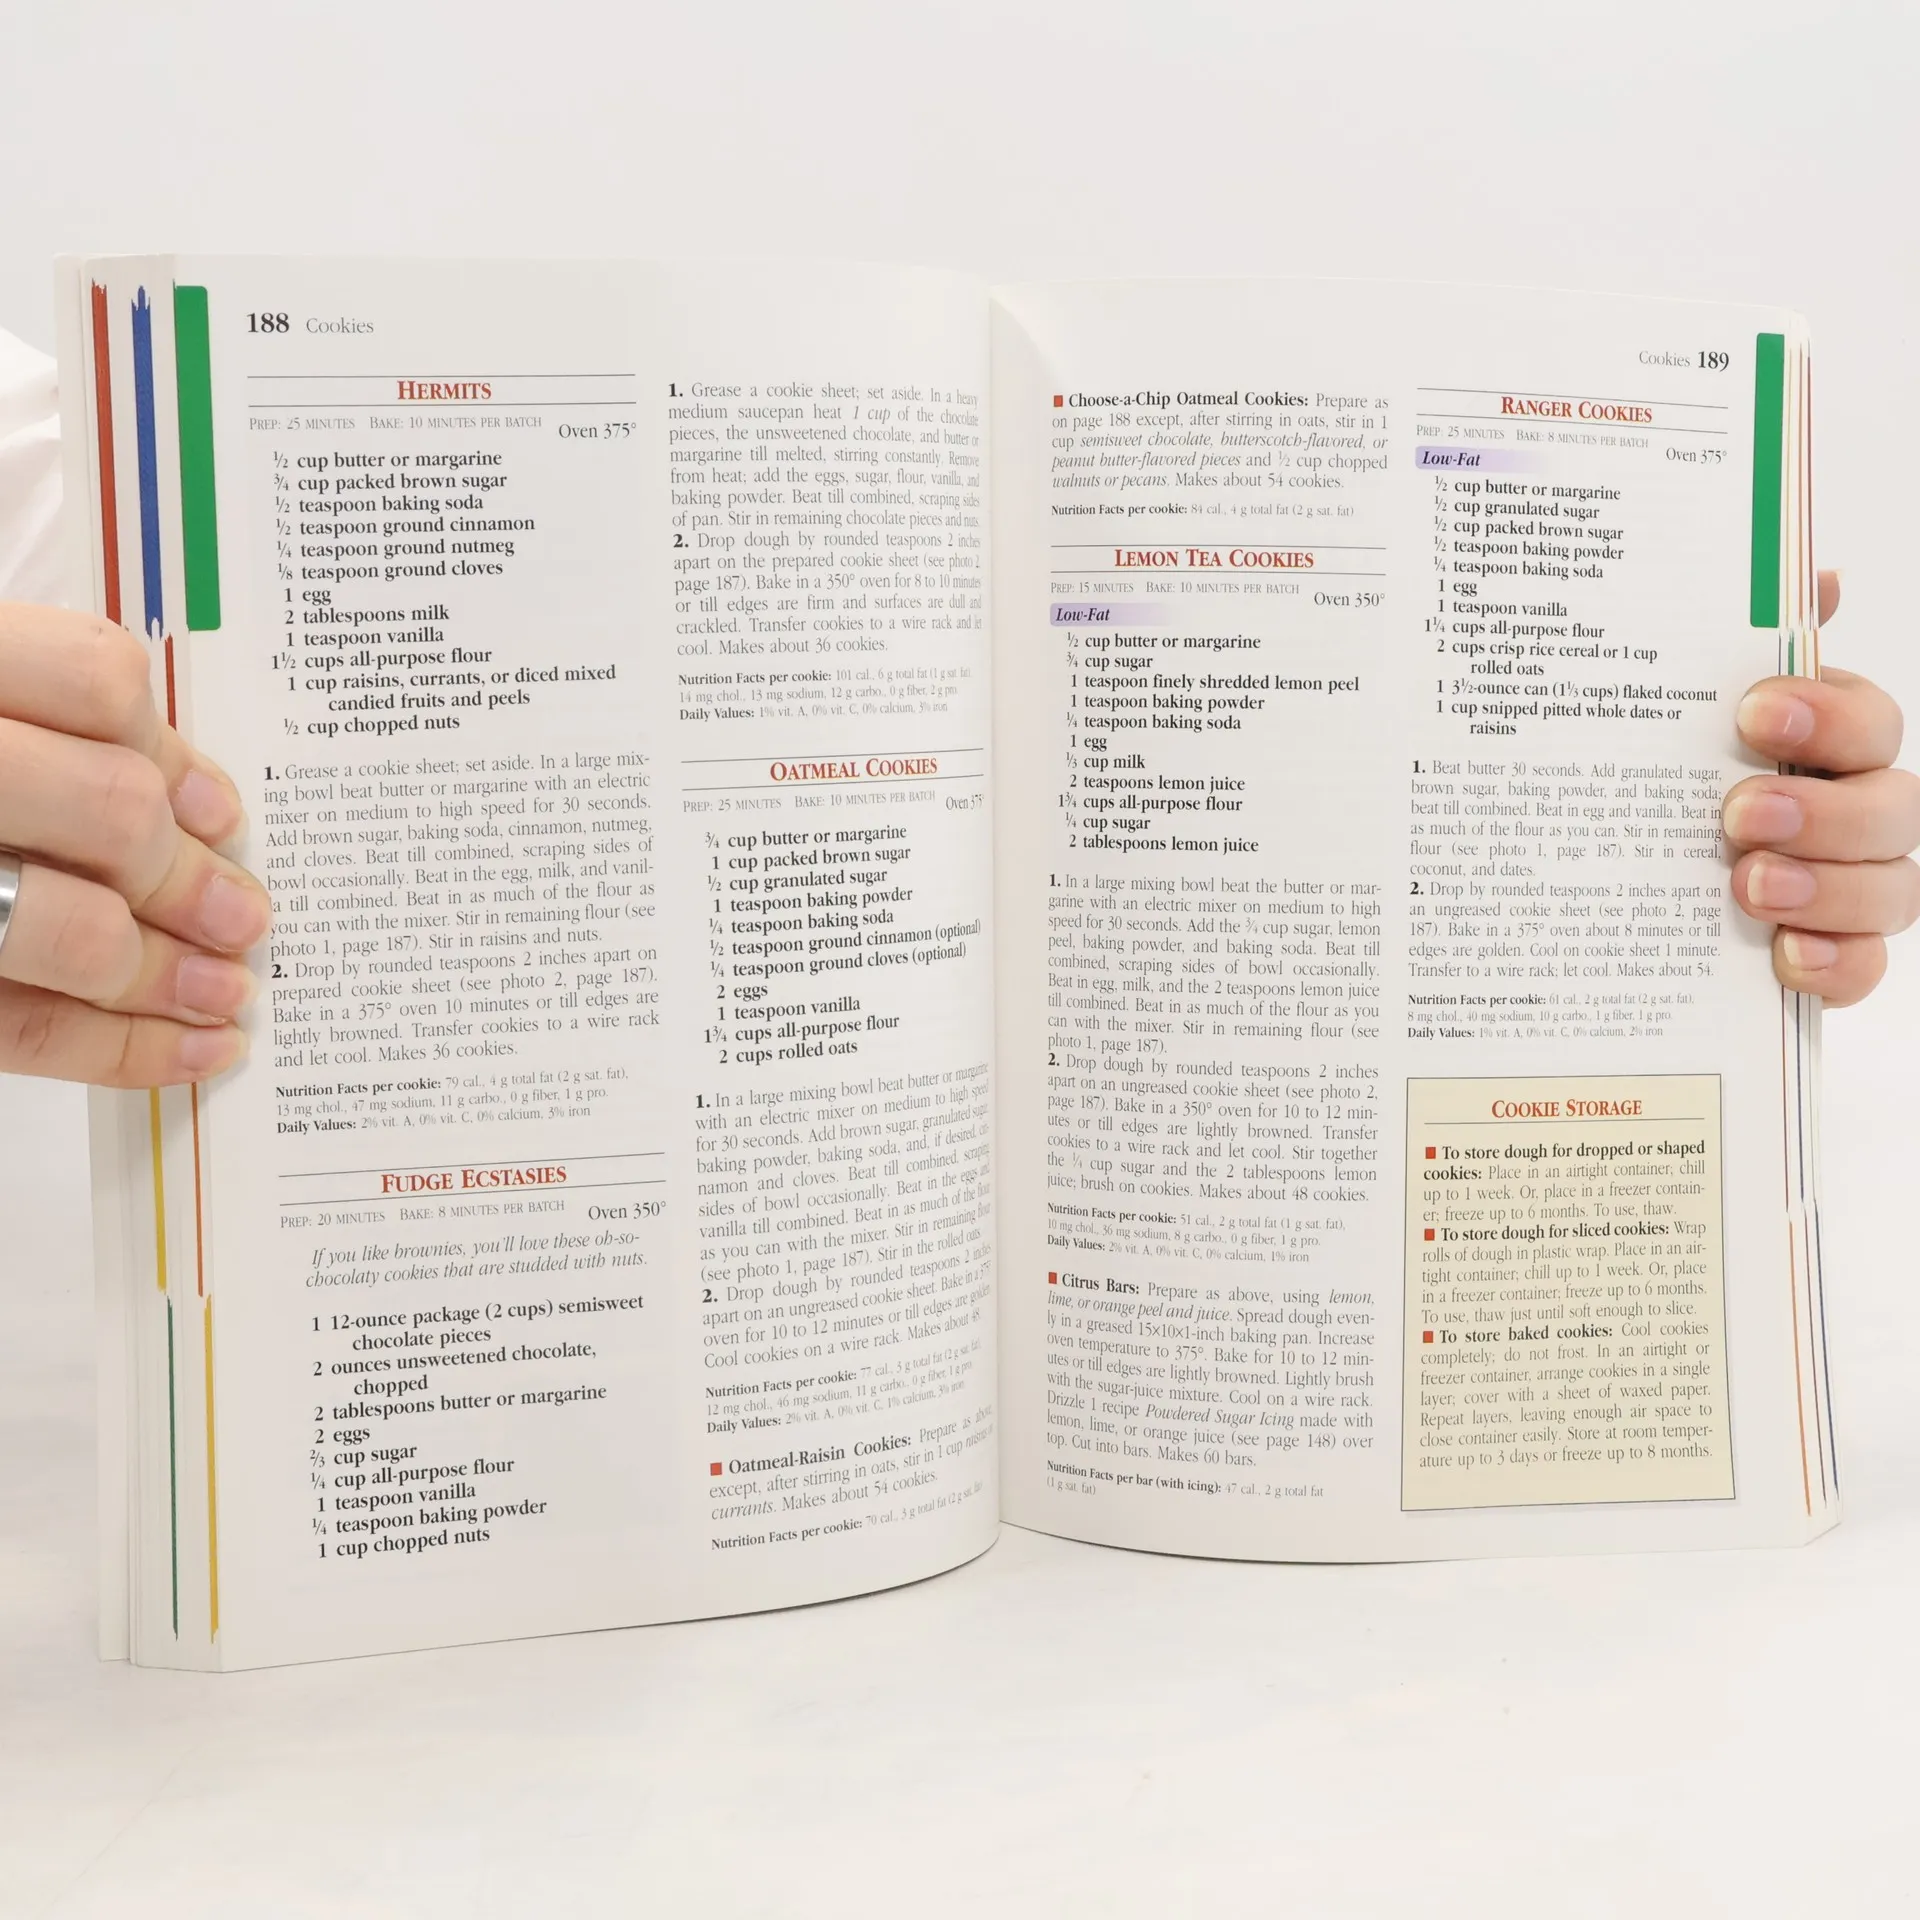 188 Cookies
HERMITS
PREP: 25 MINUTES BAKE: 10 MINUTES PER BATCH
Oven 375°
½ cup butter or margarine
¾ cup packed brown sugar
½ teaspoon baking soda
½ teaspoon ground cinnamon
¼ teaspoon ground nutmeg
⅛ teaspoon ground cloves
1 egg
2 tablespoons milk
1 teaspoon vanilla
1½ cups all-purpose flour
1 cup raisins, currants, or diced mixed
candied fruits and peels
½ cup chopped nuts
1. Grease a cookie sheet; set aside. In a large mix-
ing bowl beat butter or margarine with an electric
mixer on medium to high speed for 30 seconds.
Add brown sugar, baking soda, cinnamon, nutmeg,
and cloves. Beat till combined, scraping sides of
bowl occasionally. Beat in the egg, milk, and vanil-
la till combined. Beat in as much of the flour as
you can with the mixer. Stir in remaining flour (see
photo 1, page 187). Stir in raisins and nuts.
2. Drop by rounded teaspoons 2 inches apart on
prepared cookie sheet (see photo 2, page 187).
Bake in a 375° oven 10 minutes or till edges are
lightly browned. Transfer cookies to a wire rack
and let cool. Makes 36 cookies.
Nutrition Facts per cookie: 79 cal., 4 g total fat (2 g sat. fat),
13 mg chol., 47 mg sodium, 11 g carbo., 0 g fiber, 1 g pro.
Daily Values: 2% vit. A, 0% vit. C, 0% calcium, 3% iron
FUDGE ECSTASIES
PREP: 20 MINUTES BAKE: 8 MINUTES PER BATCH
Oven 350°
If you like brownies, you'll love these oh-so-
chocolaty cookies that are studded with nuts.
1 12-ounce package (2 cups) semisweet
chocolate pieces
2 ounces unsweetened chocolate,
chopped
2 tablespoons butter or margarine
2 eggs
⅔ cup sugar
¼ cup all-purpose flour
1 teaspoon vanilla
¼ teaspoon baking powder
1 cup chopped nuts
1. Grease a cookie sheet; set aside. In a heavy
medium saucepan heat 1 cup of the chocolate
pieces, the unsweetened chocolate, and butter or
margarine till melted, stirring constantly. Remove
from heat; add the eggs, sugar, flour, vanilla, and
baking powder. Beat till combined, scraping sides
of pan. Stir in remaining chocolate pieces and nuts.
2. Drop dough by rounded teaspoons 2 inches
apart on the prepared cookie sheet (see photo 2,
page 187). Bake in a 350° oven for 8 to 10 minutes
or till edges are firm and surfaces are dull and
crackled. Transfer cookies to a wire rack and let
cool. Makes about 36 cookies.
Nutrition Facts per cookie: 101 cal., 6 g total fat (1 g sat. fat),
14 mg chol., 13 mg sodium, 12 g carbo., 0 g fiber, 2 g pro.
Daily Values: 1% vit. A, 0% vit. C, 0% calcium, 3% iron
OATMEAL COOKIES
PREP: 25 MINUTES BAKE: 10 MINUTES PER BATCH
Oven 375°
¾ cup butter or margarine
1 cup packed brown sugar
½ cup granulated sugar
1 teaspoon baking powder
¼ teaspoon baking soda
½ teaspoon ground cinnamon (optional)
¼ teaspoon ground cloves (optional)
2 eggs
1 teaspoon vanilla
1¾ cups all-purpose flour
2 cups rolled oats
1. In a large mixing bowl beat butter or margarine
with an electric mixer on medium to high speed
for 30 seconds. Add brown sugar, granulated sugar,
baking powder, baking soda, and, if desired, cin-
namon and cloves. Beat till combined, scraping
sides of bowl occasionally. Beat in the eggs and
vanilla till combined. Beat in as much of the flour
as you can with the mixer. Stir in remaining flour
(see photo 1, page 187). Stir in the rolled oats.
2. Drop dough by rounded teaspoons 2 inches
apart on an ungreased cookie sheet. Bake in a 375°
oven for 10 to 12 minutes or till edges are golden.
Cool cookies on a wire rack. Makes about 48.
Nutrition Facts per cookie: 77 cal., 3 g total fat (2 g sat. fat),
12 mg chol., 46 mg sodium, 11 g carbo., 0 g fiber, 1 g pro.
Daily Values: 2% vit. A, 0% vit. C, 1% calcium, 3% iron
■ Oatmeal-Raisin Cookies: Prepare as above
except, after stirring in oats, stir in 1 cup raisins or
currants. Makes about 54 cookies.
Nutrition Facts per cookie: 70 cal., 3 g total fat (2 g sat. fat)
Cookies 189
■ Choose-a-Chip Oatmeal Cookies: Prepare as
on page 188 except, after stirring in oats, stir in 1
cup semisweet chocolate, butterscotch-flavored, or
peanut butter-flavored pieces and ½ cup chopped
walnuts or pecans. Makes about 54 cookies.
Nutrition Facts per cookie: 84 cal., 4 g total fat (2 g sat. fat)
LEMON TEA COOKIES
PREP: 15 MINUTES BAKE: 10 MINUTES PER BATCH
Oven 350°
Low-Fat
½ cup butter or margarine
¾ cup sugar
1 teaspoon finely shredded lemon peel
1 teaspoon baking powder
¼ teaspoon baking soda
1 egg
⅓ cup milk
2 teaspoons lemon juice
1¾ cups all-purpose flour
¼ cup sugar
2 tablespoons lemon juice
1. In a large mixing bowl beat the butter or mar-
garine with an electric mixer on medium to high
speed for 30 seconds. Add the ¾ cup sugar, lemon
peel, baking powder, and baking soda. Beat till
combined, scraping sides of bowl occasionally.
Beat in egg, milk, and the 2 teaspoons lemon juice
till combined. Beat in as much of the flour as you
can with the mixer. Stir in remaining flour (see
photo 1, page 187).
2. Drop dough by rounded teaspoons 2 inches
apart on an ungreased cookie sheet (see photo 2,
page 187). Bake in a 350° oven for 10 to 12 min-
utes or till edges are lightly browned. Transfer
cookies to a wire rack and let cool. Stir together
the ¼ cup sugar and the 2 tablespoons lemon
juice; brush on cookies. Makes about 48 cookies.
Nutrition Facts per cookie: 51 cal., 2 g total fat (1 g sat. fat),
10 mg chol., 36 mg sodium, 8 g carbo., 0 g fiber, 1 g pro.
Daily Values: 2% vit. A, 0% vit. C, 0% calcium, 1% iron
■ Citrus Bars: Prepare as above, using lemon,
lime, or orange peel and juice. Spread dough even-
ly in a greased 15x10x1-inch baking pan. Increase
oven temperature to 375°. Bake for 10 to 12 min-
utes or till edges are lightly browned. Lightly brush
with the sugar-juice mixture. Cool on a wire rack.
Drizzle 1 recipe Powdered Sugar Icing made with
lemon, lime, or orange juice (see page 148) over
top. Cut into bars. Makes 60 bars.
Nutrition Facts per bar (with icing): 47 cal., 2 g total fat
(1 g sat. fat)
RANGER COOKIES
PREP: 25 MINUTES BAKE: 8 MINUTES PER BATCH
Oven 375°
Low-Fat
½ cup butter or margarine
½ cup granulated sugar
½ cup packed brown sugar
½ teaspoon baking powder
¼ teaspoon baking soda
1 egg
1 teaspoon vanilla
1¼ cups all-purpose flour
2 cups crisp rice cereal or 1 cup
rolled oats
1 3½-ounce can (1⅓ cups) flaked coconut
1 cup snipped pitted whole dates or
raisins
1. Beat butter 30 seconds. Add granulated sugar,
brown sugar, baking powder, and baking soda;
beat till combined. Beat in egg and vanilla. Beat in
as much of the flour as you can. Stir in remaining
flour (see photo 1, page 187). Stir in cereal,
coconut, and dates.
2. Drop by rounded teaspoons 2 inches apart on
an ungreased cookie sheet (see photo 2, page
187). Bake in a 375° oven about 8 minutes or till
edges are golden. Cool on cookie sheet 1 minute.
Transfer to a wire rack; let cool. Makes about 54.
Nutrition Facts per cookie: 61 cal., 2 g total fat (2 g sat. fat),
8 mg chol., 40 mg sodium, 10 g carbo., 1 g fiber, 1 g pro.
Daily Values: 1% vit. A, 0% vit. C, 0% calcium, 2% iron
COOKIE STORAGE
■ To store dough for dropped or shaped
cookies: Place in an airtight container; chill
up to 1 week. Or, place in a freezer contain-
er; freeze up to 6 months. To use, thaw.
■ To store dough for sliced cookies: Wrap
rolls of dough in plastic wrap. Place in an air-
tight container; chill up to 1 week. Or, place
in a freezer container; freeze up to 6 months.
To use, thaw just until soft enough to slice.
■ To store baked cookies: Cool cookies
completely; do not frost. In an airtight or
freezer container, arrange cookies in a single
layer; cover with a sheet of waxed paper.
Repeat layers, leaving enough air space to
close container easily. Store at room temper-
ature up to 3 days or freeze up to 8 months.